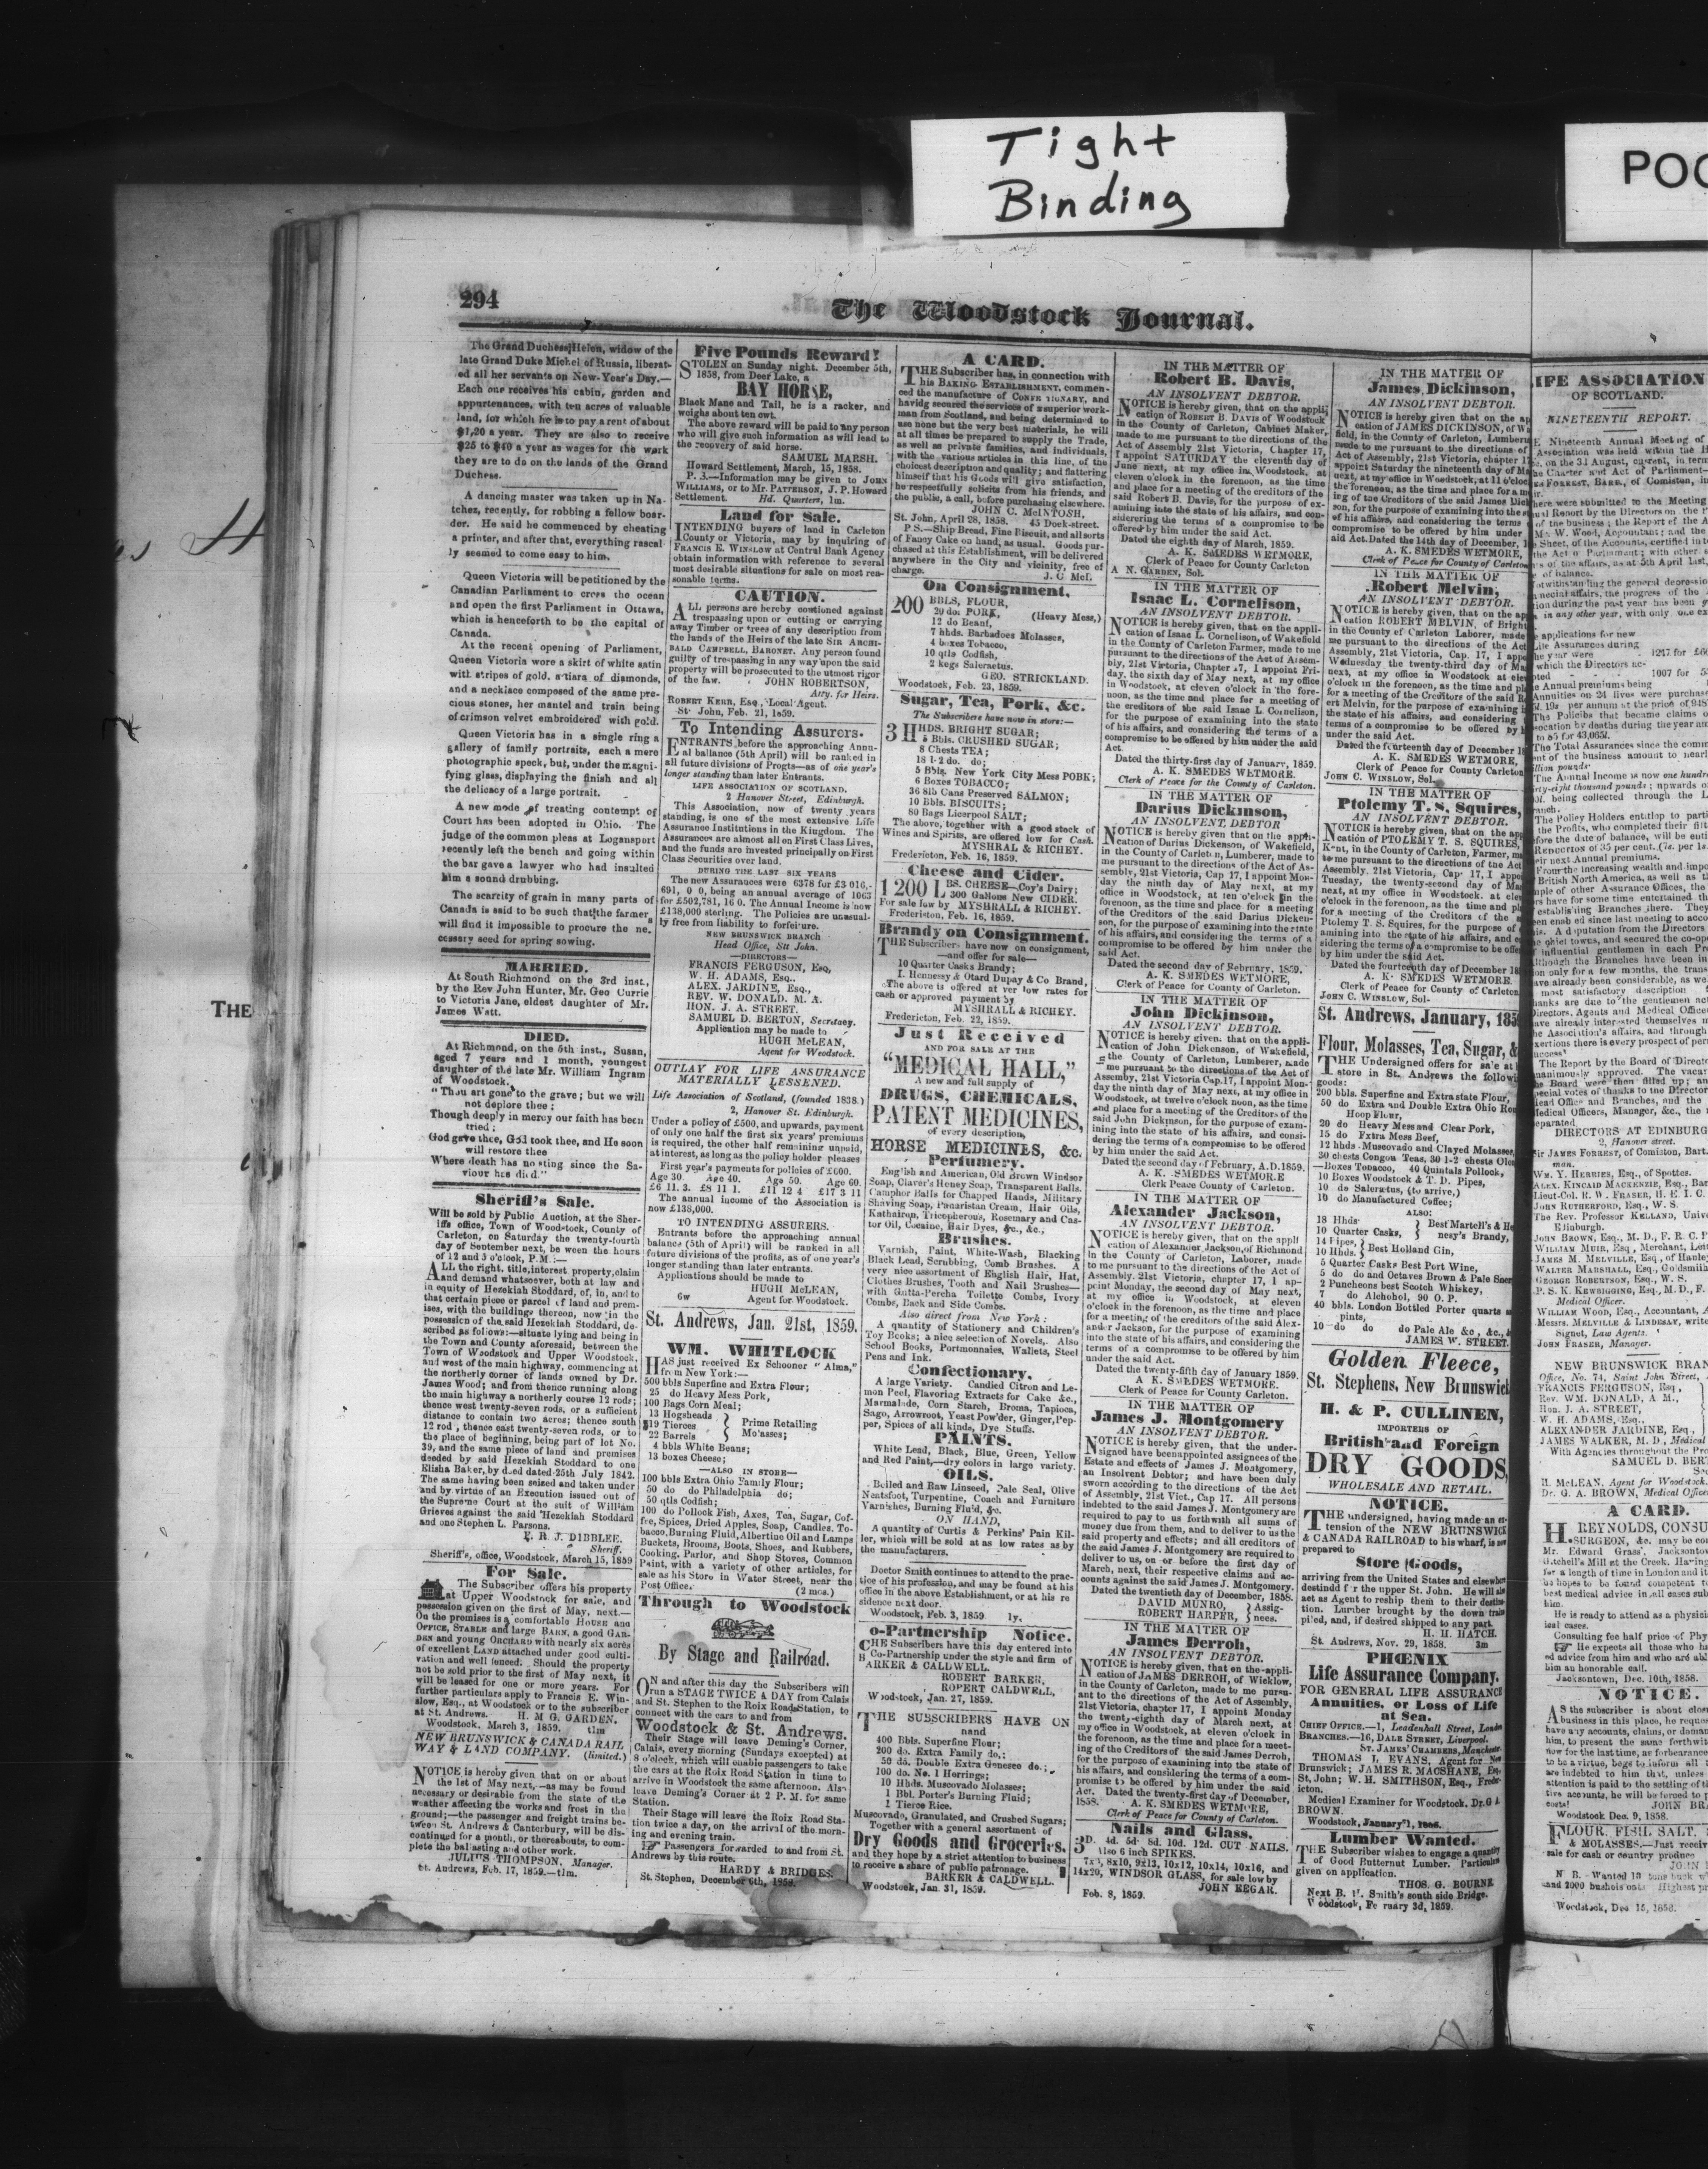 Tight
Binding
294
The Woodstock Journal.
The Grand Duchess Helen, widow of the
late Grand Duke Michel of Russia, liberat-
ed all her servants on New-Year's Day.—
Each one receives his cabin, garden and
appurtenances, with ten acres of valuable
land, for which he is to pay a rent of about
$1,20 a year. They are also to receive
$25 to $40 a year as wages for the work
they are to do on the lands of the Grand
Duchess.
A dancing master was taken up in Na-
tchez, recently, for robbing a fellow boar-
der. He said he commenced by cheating
a printer, and after that, everything rascal-
ly seemed to come easy to him.
Queen Victoria will be petitioned by the
Canadian Parliament to cross the ocean
and open the first Parliament in Ottawa,
which is henceforth to be the capital of
Canada.
At the recent opening of Parliament,
Queen Victoria wore a skirt of white satin
with stripes of gold, a tiara of diamonds,
and a necklace composed of the same pre-
cious stones, her mantel and train being
of crimson velvet embroidered with gold.
Queen Victoria has in a single ring a
gallery of family portraits, each a mere
photographic speck, but, under the magni-
fying glass, displaying the finish and all
the delicacy of a large portrait.
A new mode of treating contempt of
Court has been adopted in Ohio. The
judge of the common pleas at Logansport
recently left the bench and going within
the bar gave a lawyer who had insulted
him a sound drubbing.
The scarcity of grain in many parts of
Canada is said to be such that the farmer
will find it impossible to procure the ne-
cessary seed for spring sowing.
MARRIED.
At South Richmond on the 3rd inst.,
by the Rev John Hunter, Mr. Geo Currie
to Victoria Jane, eldest daughter of Mr.
James Watt.
DIED.
At Richmond, on the 5th inst., Susan,
aged 7 years and 1 month, youngest
daughter of the late Mr. William Ingram
of Woodstock.
"Thou art gone to the grave; but we will
not deplore thee;
Though deeply in mercy our faith has been
tried;
God gave thee, God took thee, and He soon
will restore thee
Where death has no sting since the Sa-
viour has died."
Sheriff's Sale.
Will be sold by Public Auction, at the Sher-
iffs office, Town of Woodstock, County of
Carleton, on Saturday the twenty-fourth
day of September next, between the hours
of 12 and 5 o'clock, P.M.:—
ALL the right, title, interest property, claim
and demand whatsoever, both at law and
in equity of Hezekiah Stoddard, of, in, and to
that certain piece or parcel of land and prem-
ises, with the buildings thereon, now in the
possession of the said Hezekiah Stoddard, de-
scribed as follows:—situate lying and being in
the Town and County aforesaid, between the
Town of Woodstock and Upper Woodstock,
and west of the main highway, commencing at
the northerly corner of lands owned by Dr.
James Wood; and from thence running along
the main highway a northerly course 12 rods;
thence west twenty-seven rods, or a sufficient
distance to contain two acres; thence south
12 rod, thence east twenty-seven rods, or to
the place of beginning, being part of lot No.
39, and the same piece of land and premises
deeded by said Hezekiah Stoddard to one
Elisha Baker, by deed dated 25th July 1842.
The same having been seized and taken under
and by virtue of an Execution issued out of
the Supreme Court at the suit of William
Grieves against the said Hezekiah Stoddard
and one Stephen L. Parsons.
R. J. DIBBLEE,
Sheriff.
Sheriff's, office, Woodstock, March 15, 1859
For Sale.
The Subscriber offers his property
at Upper Woodstock for sale, and
possession given on the first of May, next.—
On the premises is a comfortable HOUSE AND
OFFICE, STABLE and large BARN, a good GAR-
DEN and young ORCHARD with nearly six acres
of excellent LAND attached under good culti-
vation and well fenced. Should the property
not be sold prior to the first of May next, it
will be leased for one or more years. For
further particulars apply to Francis E. Win-
slow, Esq., at Woodstock or to the subscriber
at St. Andrews. H. M G. GARDEN.
Woodstock. March 3, 1859. t1m
NEW BRUNSWICK & CANADA RAIL
WAY & LAND COMPANY. (limited.)
NOTICE is hereby given that on or about
the 1st of May next,—as may be found
necessary or desirable from the state of the
weather affecting the works and frost in the
ground;—the passenger and freight trains be-
tween St. Andrews & Canterbury, will be dis-
continued for a month, or thereabouts, to com-
plete the ballasting and other work.
JULIUS THOMPSON, Manager.
St. Andrews, Feb. 17, 1859.—t1m.
Five Pounds Reward!
STOLEN on Sunday night. December 5th,
1858, from Deer Lake, a
BAY HORSE,
Black Mane and Tail, he is a racker, and
weighs about ten cwt.
The above reward will be paid to any person
who will give such information as will lead to
the recovery of said horse.
SAMUEL MARSH.
Howard Settlement, March, 15, 1858.
P. S.—Information may be given to JOHN
WILLIAMS, or to Mr. PATTERSON, J. P. Howard
Settlement. Hd. Quarters, 1m.
Land for Sale.
INTENDING buyers of land in Carleton
County or Victoria, may by inquiring of
FRANCIS E. WINSLOW at Central Bank Agency
obtain information with reference to several
most desirable situations for sale on most rea-
sonable terms.
CAUTION.
ALL persons are hereby cautioned against
trespassing upon or cutting or carrying
away Timber or trees of any description from
the lands of the Heirs of the late SIR ARCHI-
BALD CAMPBELL, BARONET. Any person found
guilty of trespassing in any way upon the said
property will be prosecuted to the utmost rigor
of the law. JOHN ROBERTSON,
Atty. for Heirs.
ROBERT KERR, Esq., Local Agent.
St John, Feb. 21, 1859.
To Intending Assurers.
ENTRANTS before the approaching Annu-
al ballance (5th April) will be ranked in
all future divisions of Progts—as of one year's
longer standing than later Entrants.
LIFE ASSOCIATION OF SCOTLAND.
2 Hanover Street, Edinburgh.
This Association, now of twenty years
standing, is one of the most extensive Life
Assurance Institutions in the Kingdom. The
Assurances are almost all on First Class Lives,
and the funds are invested principally on First
Class Securities over land.
DURING THE LAST SIX YEARS
The new Assurances were 6378 for £3 016,-
691, 0 0, being an annual average of 1063
for £502,781, 16 0. The Annual Income is now
£138,000 sterling. The Policies are unusual-
ly free from liability to forfeiture.
NEW BRUNSWICK BRANCH
Head Office, Stt John.
—DIRECTORS—
FRANCIS FERGUSON, Esq,
W. H. ADAMS, Esq.,
ALEX. JARDINE, Esq.,
REV. W. DONALD. M. A.
HON. J. A. STREET.
SAMUEL D. BERTON, Secretary.
Application may be made to
HUGH McLEAN,
Agent for Woodstock.
OUTLAY FOR LIFE ASSURANCE
MATERIALLY LESSENED.
Life Association of Scotland, (founded 1838.)
2, Hanover St. Edinburgh.
Under a policy of £500, and upwards, payment
of only one half the first six years' premiums
is required, the other half remaining unpaid,
at interest, as long as the policy holder pleases
First year's payments for policies of £600.
Age 30. Age 40. Age 50. Age 60.
£6 11. 3. £8 11 1. £11 12 4 £17 3 11
The annual income of the Association is
now £138,000.
TO INTENDING ASSURERS.
Entrants before the approaching annual
balance (5th of April) will be ranked in all
future divisions of the profits, as of one year's
longer standing than later entrants.
Applications should be made to
HUGH McLEAN,
6w Agent for Woodstock.
St. Andrews, Jan. 21st, 1859.
WM. WHITLOCK
HAS just received Ex Schooner "Alma,"
from New York:—
500 bbls Superfine and Extra Flour;
25 do Heavy Mess Pork,
100 Bags Corn Meal;
13 Hogsheads
19 Tierces
22 Barrels
Prime Retailing
Mo'asses;
4 bbls White Beans;
13 boxes Cheese;
—ALSO IN STORE—
100 bbls Extra Ohio Family Flour;
50 do do Philadelphia do;
50 qtls Codfish;
100 do Pollock Fish, Axes, Tea, Sugar, Cof-
fee, Spices, Dried Apples, Soap, Candles. To-
bacco, Burning Fluid, Albertine Oil and Lamps
Buckets, Brooms, Boots, Shoes, and Rubbers,
Cooking, Parlor, and Shop Stoves, Common
Paint, with a variety of other articles, for
sale as his Store in Water Street, near the
Post Office. (2 mos.)
Through to Woodstock
By Stage and Railroad.
ON and after this day the Subscribers will
run a STAGE TWICE A DAY from Calais
and St. Stephen to the Roix Road Station, to
connect with the cars to and from
Woodstock & St. Andrews.
Their Stage will leave Deming's Corner,
Calais, every morning (Sundays excepted) at
8 o'clock, which will enable passengers to take
the cars at the Roix Road Station in time to
arrive in Woodstock the same afternoon. Also
leave Deming's Corner at 2 P. M. for same
Station.
Their Stage will leave the Roix Road Sta-
tion twice a day, on the arrival of the morn-
ing and evening train.
Passengers forwarded to and from St.
Andrews by this route.
HARDY & BRIDGES.
St. Stephen, December 6th, 1859.
A CARD.
THE Subscriber has, in connection with
his BAKING ESTABLISHMENT, commen-
ced the manufacture of CONFECTIONARY, and
having secured the services of a superior work-
man from Scotland, and being determined to
use none but the very best materials, he will
at all times be prepared to supply the Trade,
as well as private families, and individuals,
with the various articles in this line, of the
choicest description and quality; and flattering
himself that his Goods will give satisfaction,
he respectfully solicits from his friends, and
the public, a call, before purchasing elsewhere.
JOHN C. McINTOSH,
St. John, April 28, 1858. 45 Dock-street.
P. S.—Ship Bread, Fine Biscuit, and all sorts
of Fancy Cake on hand, as usual. Goods pur-
chased at this Establishment, will be delivered
anywhere in the City and vicinity, free of
charge. J. C McI.
On Consignment.
200 BBLS, FLOUR,
20 do. PORK, (Heavy Mess,)
12 do Beant,
7 hhds. Barbadoes Molasses,
4 boxes Tobacco,
10 qtls Codfish,
2 kegs Saleraetus.
GEO. STRICKLAND.
Woodstock, Feb. 23, 1859.
Sugar, Tea, Pork, &c.
The Subscribers have now in store:—
3 HHDS. BRIGHT SUGAR;
5 Bbls. CRUSHED SUGAR;
8 Chests TEA;
18 1-2 do. do;
5 Bbls. New York City Mess POBK;
6 Boxes TOBACCO;
36 8lb Cans Preserved SALMON;
10 Bbls. BISCUITS;
80 Bags Licerpool SALT;
The above, together with a good stock of
Wines and Spirits, are offered low for Cash.
MYSHRAL & RICHEY.
Fredericton, Feb. 16, 1859.
Cheese and Cider.
1200 LBS. CHEESE—Coy's Dairy;
300 Gallons New CIDER.
For sale low by MYSHRALL & RICHEY.
Frederiston, Feb. 16, 1859.
Brandy on Consignment.
THE Subscribers have now on consignment,
—and offer for sale—
10 Quarter Casks Brandy;
I. Hennessy & Otard Dupay & Co Brand,
The above is offered at ver low rates for
cash or approved payment by
MYSHRALL & RICHEY.
Fredericton, Feb. 22, 1859.
Just Received
AND FOR SALE AT THE
"MEDICAL HALL,"
A new and full supply of
DRUGS, CHEMICALS,
PATENT MEDICINES,
of every description,
HORSE MEDICINES, &c.
Perfumery.
English and American, Old Brown Windsor
Soap, Claver's Honey Soap, Transparent Balls.
Camphor Balls for Chapped Hands, Military
Shaving Soap, Panaristan Cream, Hair Oils,
Kathairon, Tricopherous, Rosemary and Cas-
tor Oil, Cocaine, Hair Dyes, &c., &c.,
Brushes.
Varnish, Paint, White-Wash, Blacking
Black Lead, Scrubbing, Comb Brushes. A
very nice assortment of English Hair, Hat,
Clothes Brushes, Tooth and Nail Brushes—
with Gutta-Percha Toilette Combs, Ivory
Combs, Back and Side Combs.
Also direct from New York:
A quantity of Stationery and Children's
Toy Books; a nice selection of Novels. Also
School Books, Portmonnaies, Wallets, Steel
Pens and Ink.
Confectionary.
A large Variety. Candied Citron and Le-
mon Peel, Flavoring Extracts for Cake &c.,
Marmalade, Corn Starch, Broma, Tapioca,
Sago, Arrowroot, Yeast Powder, Ginger, Pep-
per, Spices of all kinds, Dye Stuffs.
PAINTS.
White Lead, Black, Blue, Green, Yellow
and Red Paint,—dry colors in large variety.
OILS.
Boiled and Raw Linseed, Pale Seal, Olive
Neatsfoot, Turpentine, Coach and Furniture
Varnishes, Burning Fluid, &c.
ON HAND,
A quantity of Curtis & Perkins' Pain Kil-
ler, which will be sold at as low rates as by
the manufacturers.
Doctor Smith continues to attend to the prac-
tice of his profession, and may be found at his
office in the above Establishment, or at his re
sidence next door.
Woodstock, Feb. 3, 1859 1y.
o-Partnership Notice.
THE Subscribers have this day entered into
Co-Partnership under the style and firm of
ARKER & CALDWELL.
ROBERT BARKER,
ROPERT CALDWELL,
Woodstock, Jan. 27, 1859.
THE SUBSCRIBERS HAVE ON
nand
400 Bbls. Superfine Flour;
200 do. Extra Family do.;
50 do. Double Extra Genesee do.;
100 do. No. 1 Herrings;
10 Hhds. Muscovado Molasses;
1 Bbl. Porter's Burning Fluid;
1 Tierce Rice.
Muscovado, Granulated, and Crushed Sugars;
Together with a general assortment of
Dry Goods and Groceries.
and they hope by a strict attention to business
to receive a share of public patronage.
BARKER & CALDWELL.
Woodstock, Jan. 31, 1859.
IN THE MATTER OF
Robert B. Davis,
AN INSOLVENT DEBTOR.
NOTICE is hereby given, that on the appli
cation of ROBERT B. DAVIS of Woodstock
in the County of Carleton, Cabinet Maker,
made to me pursuant to the directions of the
Act of Assembly 21st Victoria, Chapter 17,
I appoint SATURDAY the eleventh day of
June next, at my office in Woodstock, at
eleven o'clock in the forenoon, as the time
and place for a meeting of the creditors of the
said Robert B. Davis, for the purpose of ex-
amining into the state of his affairs, and con-
siderering the terms of a compromise to be
offered by him under the said Act.
Dated the eighth day of March, 1859.
A. K. SMEDES WETMORE,
Clerk of Peace for County Carleton
A N. GARDEN, Sol.
IN THE MATTER OF
Isaac L. Cornelison,
AN INSOLVENT DEBTOR.
NOTICE is hereby given, that on the appli-
cation of Isaac L. Cornelison, of Wakefield
in the County of Carleton Farmer, made to me
pursuant to the directions of the Act of Assem-
bly, 21st Victoria, Chapter 17, I appoint Fri-
day, the sixth day of May next, at my office
in Woodstock, at eleven o'clock in the fore-
noon, as the time and place for a meeting of
the creditors of the said Isaac L. Cornelison,
for the purpose of examining into the state
of his affairs, and considering the terms of a
compromise to be offered by him under the said
Act.
Dated the thirty-first day of January, 1859.
A. K. SMEDES WETMORE.
Clerk of Peace for the County of Carleton.
IN THE MATTER OF
Darius Dickinson,
AN INSOLVENT DEBTOR
NOTICE is hereby given that on the appli-
cation of Darius Dickinson, of Wakefield,
in the County of Carleton, Lumberer, made to
me pursuant to the directions of the Act of As-
sembly, 21st Victoria, Cap 17, I appoint Mon-
day the ninth day of May next, at my
office in Woodstock, at ten o'clock in the
forenoon, as the time and place for a meeting
of the Creditors of the said Darius Dicken-
son, for the purpose of examining into the state
of his affairs, and considering the terms of a
compromise to be offered by him under the
said Act.
Dated the second day of February, 1859.
A. K. SMEDES WETMORE,
Clerk of Peace for County of Carleton.
IN THE MATTER OF
John Dickinson,
AN INSOLVENT DEBTOR.
NOTICE is hereby given. that on the appli-
cation of John Dickenson, of Wakefield,
the County of Carleton, Lumberer, made
me pursuant to the directions of the Act of
Assemby, 21st Victoria Cap. 17, I appoint Mon-
day the ninth day of May next, at my office in
Woodstock, at twelve o'clock noon, as the time
and place for a meeting of the Creditors of the
said John Dickinson, for the purpose of exam-
ining into the state of his affairs, and consi-
dering the terms of a compromise to be offered
by him under the said Act.
Dated the second day of February, A.D. 1859.
A. K. SMEDES WETMORE
Clerk Peace for County of Carleton.
IN THE MATTER OF
Alexander Jackson,
AN INSOLVENT DEBTOR.
NOTICE is hereby given, that on the appli
cation of Alexander Jackson, of Richmond
in the County of Carleton, Laborer, made
to me pursuant to the directions of the Act of
Assembly. 21st Victoria, chapter 17, I ap-
point Monday, the second day of May next,
at my office in Woodstock, at eleven
o'clock in the forenoon, as the time and place
for a meeting of the creditors of the said Alex-
ander Jackson, for the purpose of examining
into the state of his affairs, and considering the
terms of a compromise to be offered by him
under the said Act.
Dated the twenty-fifth day of January 1859.
A K. SMEDES WETMORE.
Clerk of Peace for County Carleton.
IN THE MATTER OF
James J. Montgomery
AN INSOLVENT DEBTOR.
NOTICE is hereby given, that the under-
signed have been appointed assignees of the
Estate and effects of James J. Montgomery,
an Insolvent Debtor; and have been duly
sworn according to the directions of the Act
of Assembly, 21st Vict., Cap 17. All persons
indebted to the said James J. Montgomery are
required to pay to us forthwith all sums of
money due from them, and to deliver to us the
said property and effects; and all creditors of
the said James J. Montgomery are required to
deliver to us, on or before the first day of
March, next, their respective claims and ac-
counts against the said James J. Montgomery.
Dated the twentieth day of December, 1858.
DAVID MUNRO, Assig-
ROBERT HARPER, nees.
IN THE MATTER OF
James Derroh,
AN INSOLVENT DEBTOR.
NOTICE is hereby given, that on the appli-
cation of JAMES DERROH, of Wicklow,
in the County of Carleton, made to me pursu-
ant to the directions of the Act of Assembly,
21st Victoria, chapter 17, I appoint Monday
the twenty-eighth day of March next, at
my office in Woodstock, at eleven o'clock in
the forenoon, as the time and place for a meet-
ing of the Creditors of the said James Derroh,
for the purpose of examining into the state of
his affairs, and considering the terms of a com-
promise to be offered by him under the said
Act. Dated the twenty-first day of December,
1858. A. K. SMEDES WETMORE,
Clerk of Peace for County of Carleton.
Nails and Glass.
3D. 4d. 5d. 8d. 10d. 12d. CUT NAILS.
Also 6 inch SPIKES.
7x9, 8x10, 9x13, 10x12, 10x14, 10x16, and
14x20, WINDSOR GLASS, for sale low by
JOHN EDGAR.
Feb. 8, 1859.
IN THE MATTER OF
James Dickinson,
AN INSOLVENT DEBTOR.
NOTICE is hereby given that on the ap
cation of JAMES DICKINSON, of W
field, in the County of Carleton, Lumberu
made to me pursuant to the directions of
Act of Assembly, 21st Victoria, chapter 1
appoint Saturday the nineteenth day of Ma
next, at my office in Woodstock, at 11 o'cloc
the forenoon, as the time and place for a m
ing of the Creditors of the said James Dick
son, for the purpose of examining into the s
of his affairs, and considering the terms
compromise to be offered by him under
aid Act. Dated the 14th day of December, 1
A. K. SMEDES WETMORE,
Clerk of Peace for County of Carleton
IN THE MATTER OF
Robert Melvin,
AN INSOLVENT DEBTOR.
NOTICE is hereby given, that on the ap
cation ROBERT MELVIN, of Bright
in the County of Carleton Laborer, made
me pursuant to the directions of the Act
Assembly, 21st Victoria, Cap. 17, I appo
Wednesday the twenty-third day of Ma
next, at my office in Woodstock at elev
o'clock in the forenoon, as the time and pl
for a meeting of the Creditors of the said R
ert Melvin, for the purpose of examining i
the state of his affairs, and considering
terms of a compromise to be offered by h
under the said Act.
Dated the fourteenth day of December 18
A. K. SMEDES WETMORE,
Clerk of Peace for County Carleton
JOHN C. WINSLOW, Sol.
IN THE MATTER OF
Ptolemy T. S. Squires,
AN INSOLVENT DEBTOR.
NOTICE is hereby given, that on the app
cation of PTOLEMY T. S. SQUIRES,
Kent, in the County of Carleton, Farmer, m
to me pursuant to the directions of the Act
Assembly. 21st Victoria, Cap. 17, I appo
Tuesday, the twenty-second day of Ma
next, at my office in Woodstock. at ele
o'clock in the forenoon, as the time and pl
for a meeting of the Creditors of the
Ptolemy T. S. Squires, for the purpose of
amining into the state of his affairs, and c
sidering the terms of a compromise to be offe
by him under the said Act.
Dated the fourteenth day of December 18
A. K. SMEDES WETMORE.
Clerk of Peace for County of Carleton
JOHN C. WINSLOW, Sol-
St. Andrews, January, 185
Flour, Molasses, Tea, Sugar, &
THE Undersigned offers for sale at
store in St. Andrews the follow
goods:
200 bbls. Superfine and Extra state Flour,
50 do Extra and Double Extra Ohio Ro
Hoop Flour,
20 do Heavy Mess and Clear Pork,
15 do Extra Mess Beef,
12 hhds Muscovado and Clayed Molasses
30 chests Congou Teas, 30 1-2 chests Olo
—Boxes Tobacco, 40 Quintals Pollock,
10 Boxes Woodstock & T. D. Pipes,
10 do Saleratus, (to arrive,)
10 do Manufactured Coffee;
ALSO:
18 Hhds
10 Quarter Casks,
Best Martell's & He
nesy's Brandy,
14 Pipes,
10 Hhds.
Best Holland Gin,
5 Quarter Casks Best Port Wine,
5 do do and Octaves Brown & Pale Sher
2 Puncheons best Scotch Whiskey,
7 do Alchohol, 90 O. P.
40 bbls. London Bottled Porter quarts
pints,
10 do do do Pale Ale &c., &c.,
JAMES W. STREET.
Golden Fleece,
St. Stephens, New Brunswick
H. & P. CULLINEN,
IMPORTERS OF
British and Foreign
DRY GOODS,
WHOLESALE AND RETAIL.
NOTICE.
THE undersigned, having made an ex-
tension of the NEW BRUNSWICK
& CANADA RAILROAD to his wharf, is now
prepared to
Store Goods,
arriving from the United States and elsewhere
destindd for the upper St. John. He will also
act as Agent to reship them to their destina-
tion. Lumber brought by the down trains
piled, and, if desired shipped to any part.
H. H. HATCH.
St. Andrews, Nov. 29, 1858. 3m
PHŒNIX
Life Assurance Company.
FOR GENERAL LIFE ASSURANCE
Annuities, or Loss of Life
at Sea.
CHIEF OFFICE.—1, Leadenhall Street, London
BRANCHES.—16, DALE STREET, Liverpool.
ST. JAMES' CHAMBERS, Manchester.
THOMAS I. EVANS, Agent for New
Brunswick; JAMES R. MACSHANE, Esq.
St, John; W. H. SMITHSON, Esq., Freder-
icton.
Medical Examiner for Woodstock. Dr. G A
BROWN.
Woodstock, January 1,
Lumber Wanted.
THE Subscriber wishes to engage a quantity
of Good Butternut Lumber. Particulars
given on application.
THOS. G. BOURNE
Next B. Smith's south side Bridge.
Woodstock, Fe ruary 3d, 1859.
THE
POC
IFE ASSOCIATION
OF SCOTLAND.
NINETEENTH REPORT.
DIRECTORS AT EDINBURG
2, Hanover street.
NEW BRUNSWICK BRAN
Office, No. 74, Saint John Street,
FRANCIS FERGUSON, Esq,
Rev. WM. DONALD, A M.,
Hon. J. A. STREET,
W. H. ADAMS, Esq.,
ALEXANDER JARDINE, Esq,
JAMES WALKER, M. D, Medical
With Agencies throughout the Pro
SAMUEL D. BER
H. McLEAN, Agent for Woodstock.
Dr. G. A. BROWN, Medical Office
A CARD.
H. REYNOLDS, CONSU
SURGEON, &c. may be con
Jacksontown, Dec. 10th, 1858.
NOTICE.
Woodstock Dec. 9, 1858.
FLOUR, FISH, SALT,
& MOLASSES.—Just receiv
sale for cash or country produce
Woodstock, Dec 15, 1858.